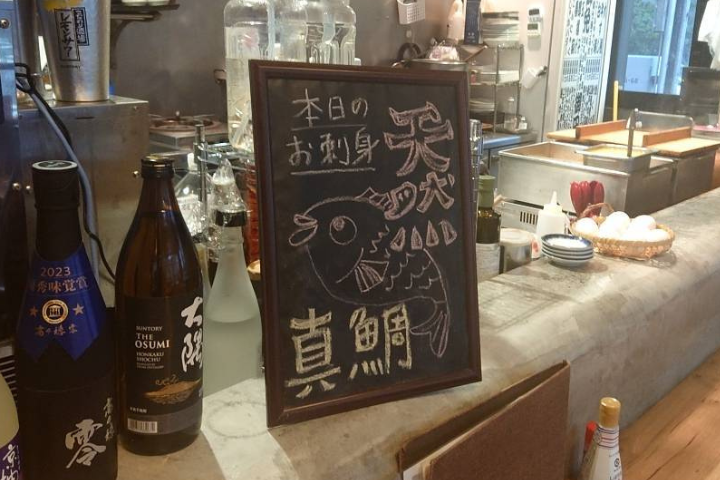 本日の
お刺身
天然
真鯛
2023
秀味覚賞
零
SUNTORY
THE
OSUMI
HONKAKU
SHOCHU
大隅